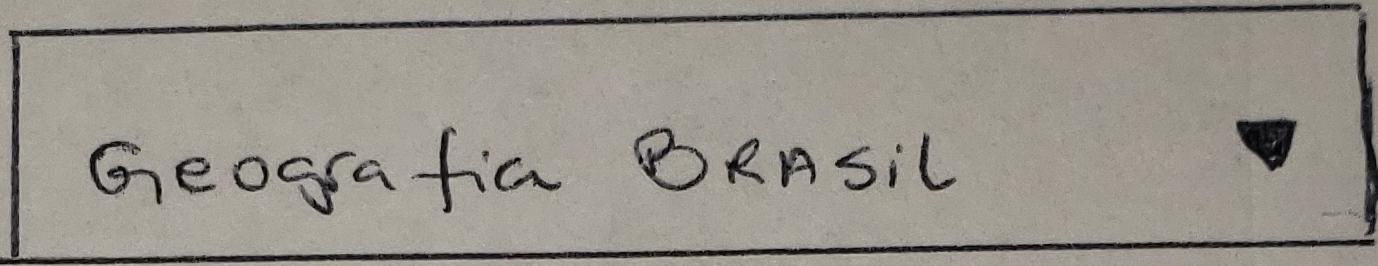 Geografia BRASil